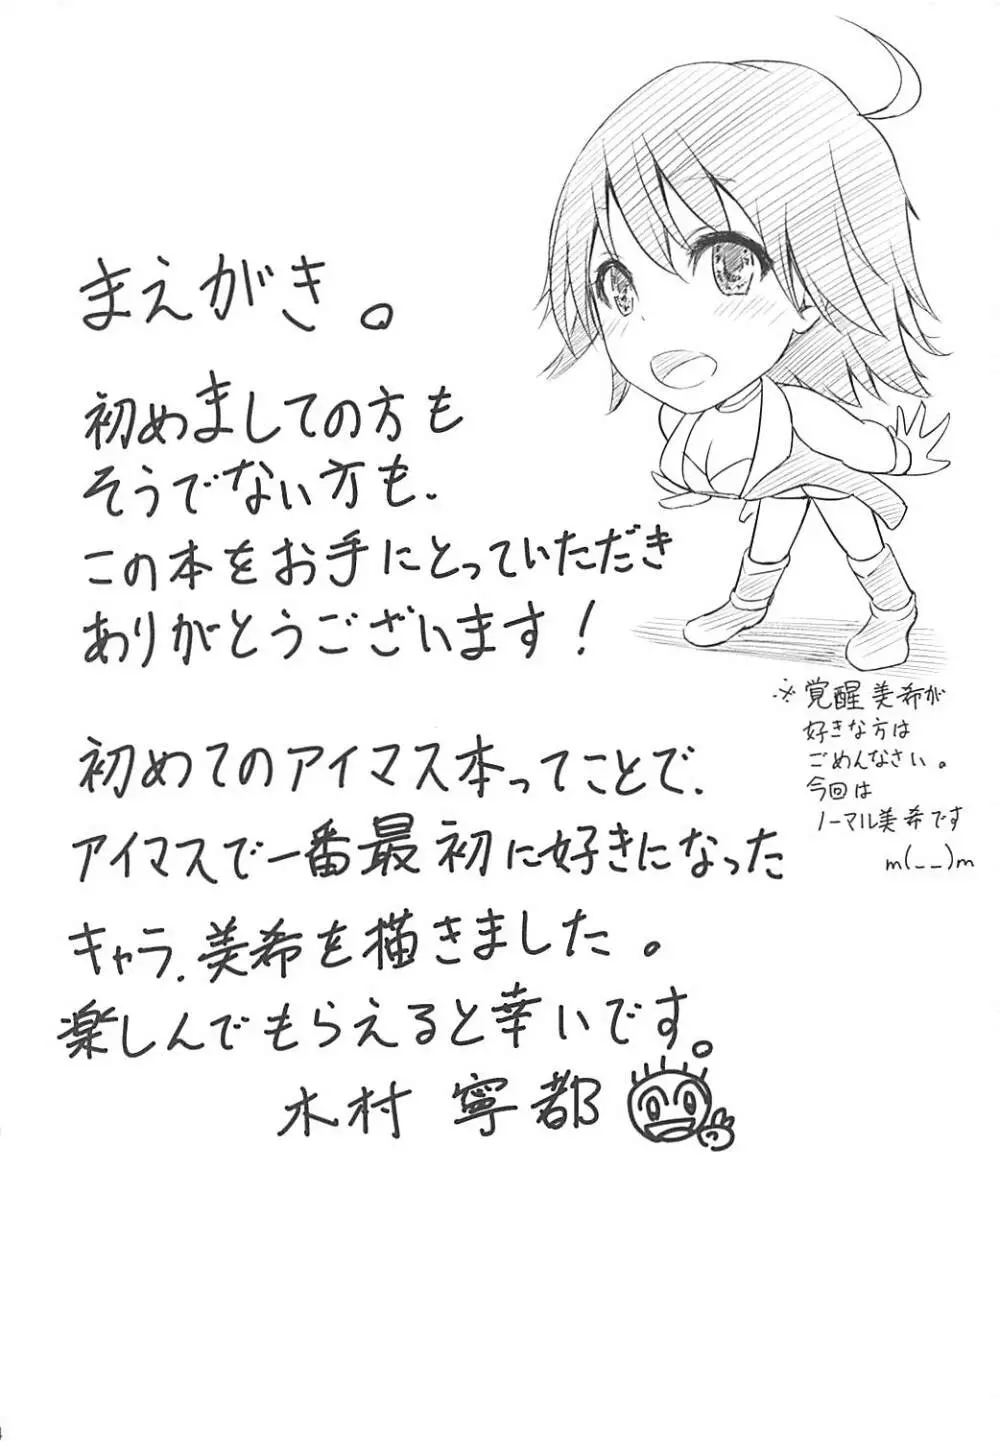 まえがき。
初めましての方も
そうでない方も、
この本をお手にとっていただき
ありがとうございます！
初めてのアイマス本ってことで、
アイマスで一番最初に好きになった
キャラ、美希を描きました。
楽しんでもらえると幸いです。
木村寧都
※覚醒美希が
好きな方は
ごめんなさい。
今回は
ノーマル美希です
m(_ _)m